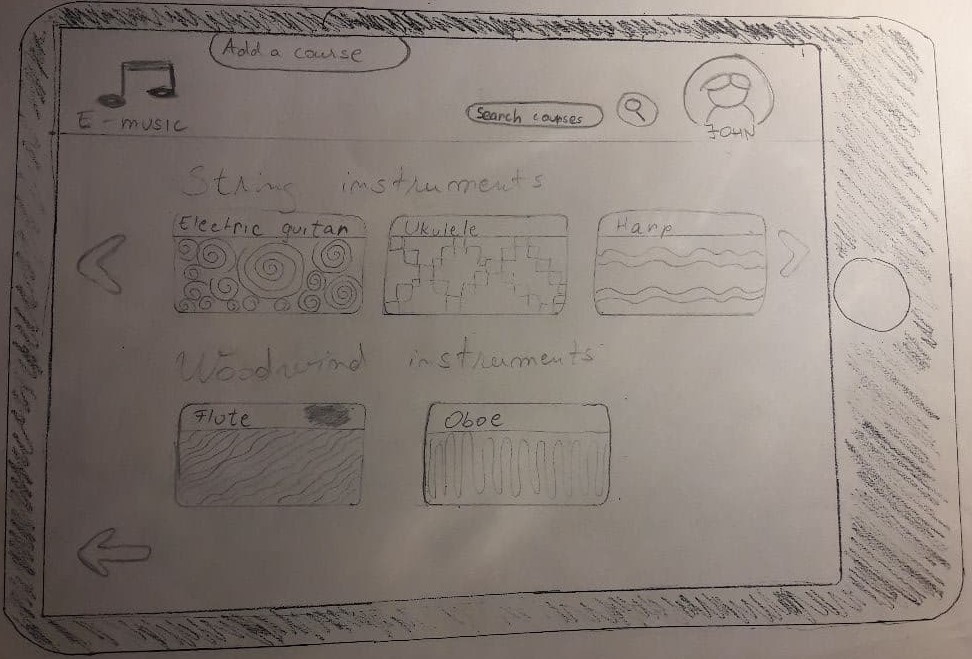 Add a course
E-music
Search courses
JOHN
String instruments
Electric guitar
Ukulele
Harp
Woodwind instruments
Flute
Oboe